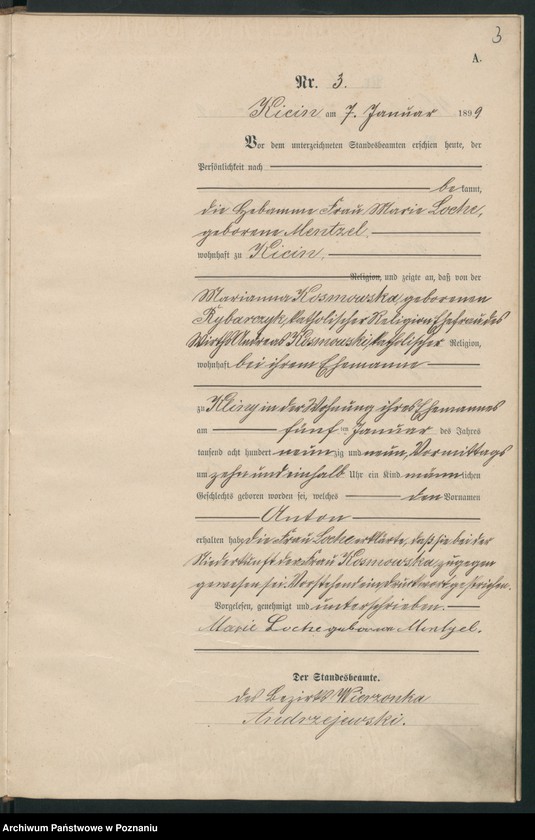 3
A.
Nr. 3.
Kicin am 7. Januar 1899
Vor dem unterzeichneten Standesbeamten erschien heute, der
Persönlichkeit nach
bekannt,
die Hebamme Frau Marie Loche,
geborene Mentzel,
wohnhaft zu Kicin,
Religion, und zeigte an, daß von der
Marianna Kosmowska, geborenen
Rybarczyk, katholischer Religion Ehefrau des
Wirths Andreas Kosmowski, katholischer Religion,
wohnhaft bei ihrem Ehemanne
zu Kliny in der Wohnung ihres Ehemannes
am fünften Januar des Jahres
tausend acht hundert neunzig und neun, Vormittags
um zehn und einhalb Uhr ein Kind männlichen
Geschlechts geboren worden sei, welches den Vornamen
Anton
erhalten habe, die Frau Loche erklärte, daß sie bei der
Niederkunft der Frau Kosmowska zugegen
gewesen sei. Vorstehend ein Druckwort gestrichen.
Vorgelesen, genehmigt und unterschrieben.
Marie Loche geborene Mentzel.
Der Standesbeamte.
des Bezirks Wierzonka
Andrzejewski.
Archiwum Państwowe w Poznaniu